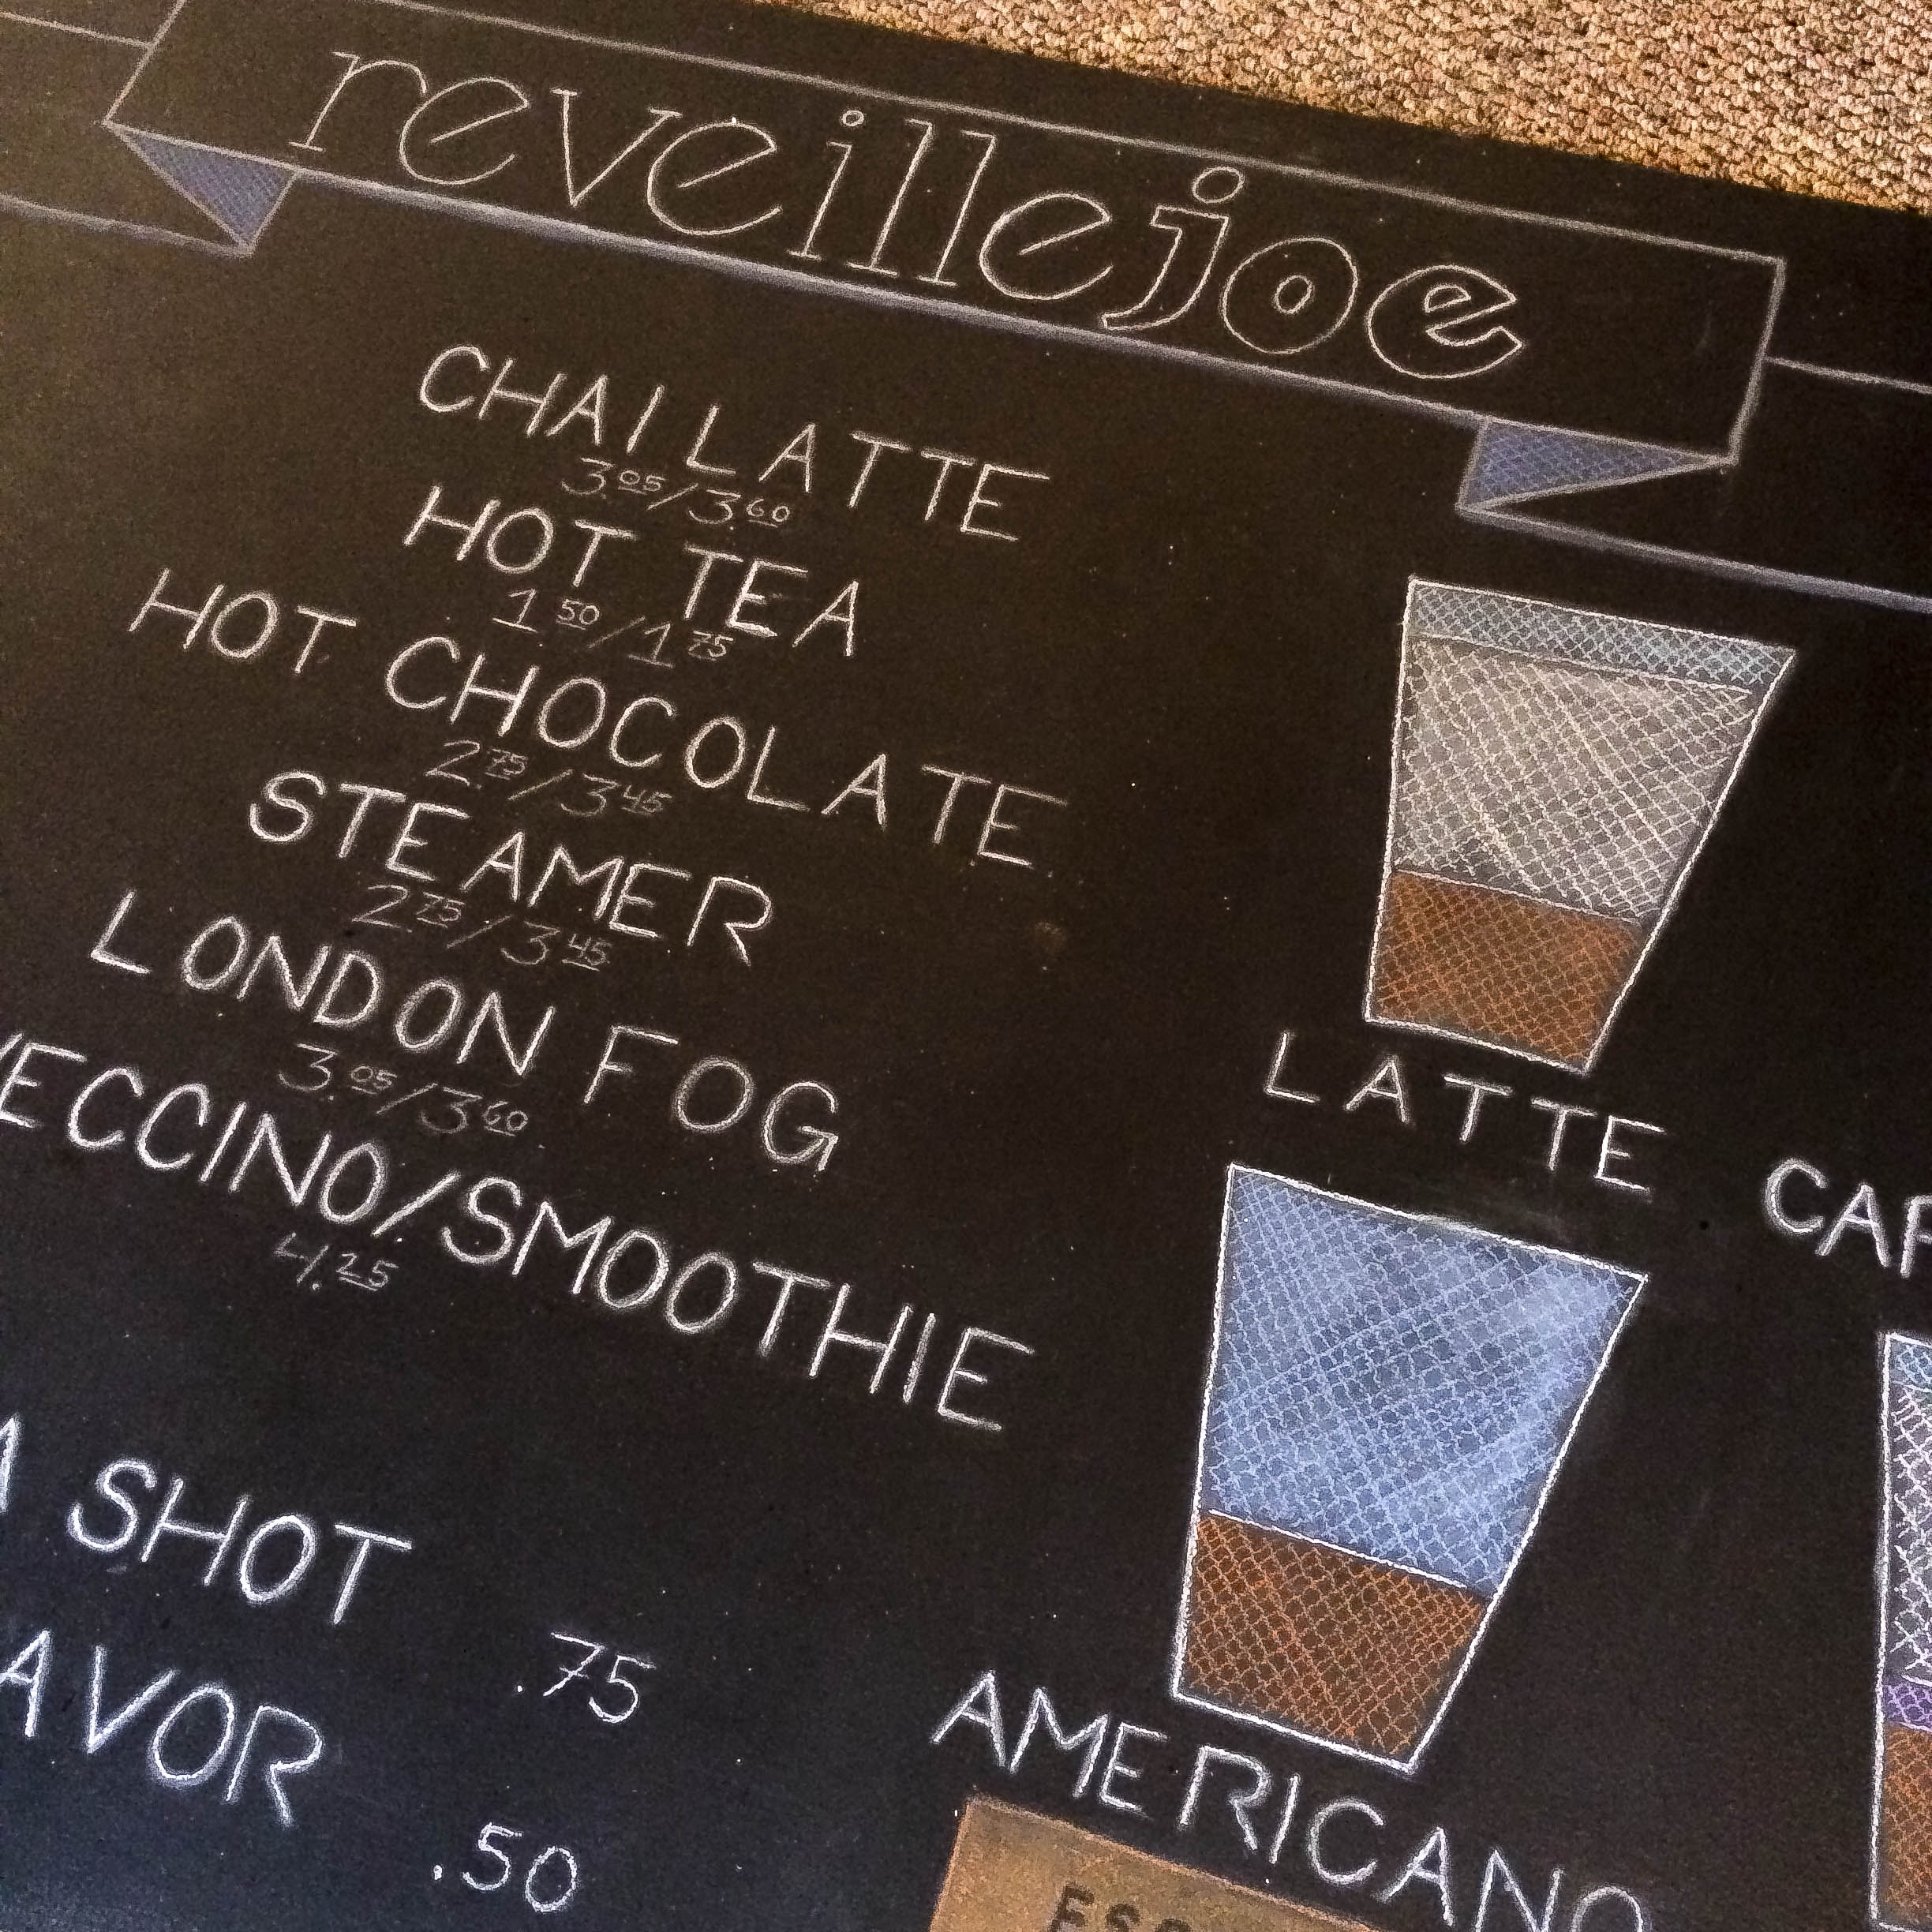 reveillejoe
CHAI LATTE
3.05/3.60
HOT TEA
1.50/1.75
HOT CHOCOLATE
2.75/3.45
STEAMER
2.75/3.45
LONDON FOG
3.05/3.60
ECCINO/SMOOTHIE
4.25
A SHOT
.75
AVOR
.50
LATTE
CAP
AMERICANO
ESC